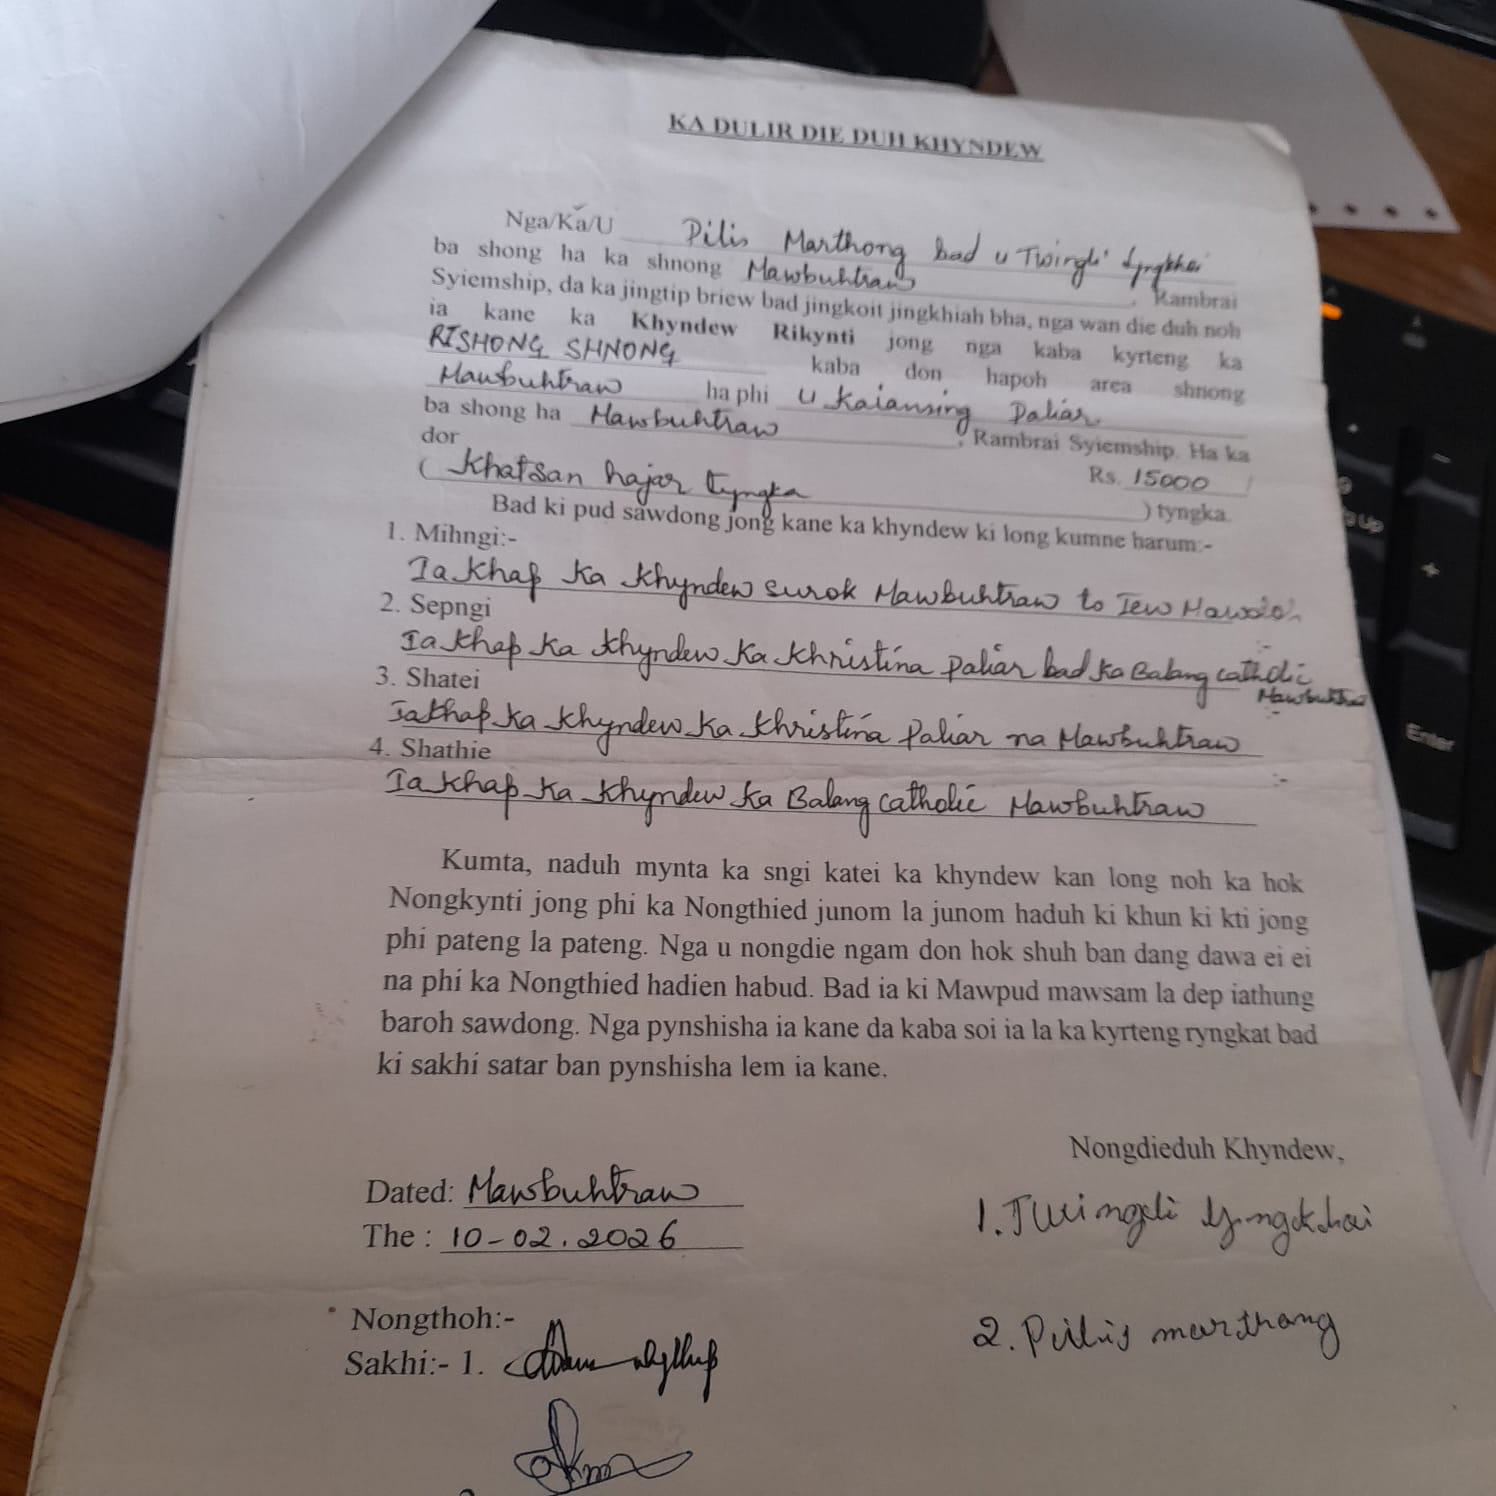 KA DULIR DIE DUH KHYNDEW
Nga/Ka/U Pilis Marthong bad u Twingli Lyngkhoi
ba shong ha ka shnong Mawbuhtraw, Rambrai
Syiemship, da ka jingtip briew bad jingkoit jingkhiah bha, nga wan die duh noh
ia kane ka Khyndew Rikynti jong nga kaba kyrteng ka
RISHONG SHNONG kaba don hapoh area shnong
Mawbuhtraw ha phi u Kaiansing Paliar
ba shong ha Mawbuhtraw, Rambrai Syiemship. Ha ka
dor Rs. 15000/
( Khatsan hajar tyngka ) tyngka.
Bad ki pud sawdong jong kane ka khyndew ki long kumne harum:-
1. Mihngi:-
Ia Khap Ka Khyndew Surok Mawbuhtraw to Iew
2. Sepngi :-
Ia Khap Ka Khyndew Ka Khristina Paliar bad Ka Balang Catholic
Mawbuhtraw
3. Shatei :-
Ia Khap Ka Khyndew Ka Khristina Paliar na Mawbuhtraw
4. Shathie :-
Ia Khap Ka Khyndew Ka Balang Catholic Mawbuhtraw
Kumta, naduh mynta ka sngi katei ka khyndew kan long noh ka hok
Nongkynti jong phi ka Nongthied junom la junom haduh ki khun ki kti jong
phi pateng la pateng. Nga u nongdie ngam don hok shuh ban dang dawa ei ei
na phi ka Nongthied hadien habud. Bad ia ki Mawpud mawsam la dep iathung
baroh sawdong. Nga pynshisha ia kane da kaba soi ia la ka kyrteng ryngkat bad
ki sakhi satar ban pynshisha lem ia kane.
Nongdieduh Khyndew,
Dated: Mawbuhtraw
1. Twingli Lyngkhoi
The : 10-02.2026
Nongthoh:-
2. Pilis marthong
Sakhi:- 1.
Up
Enter